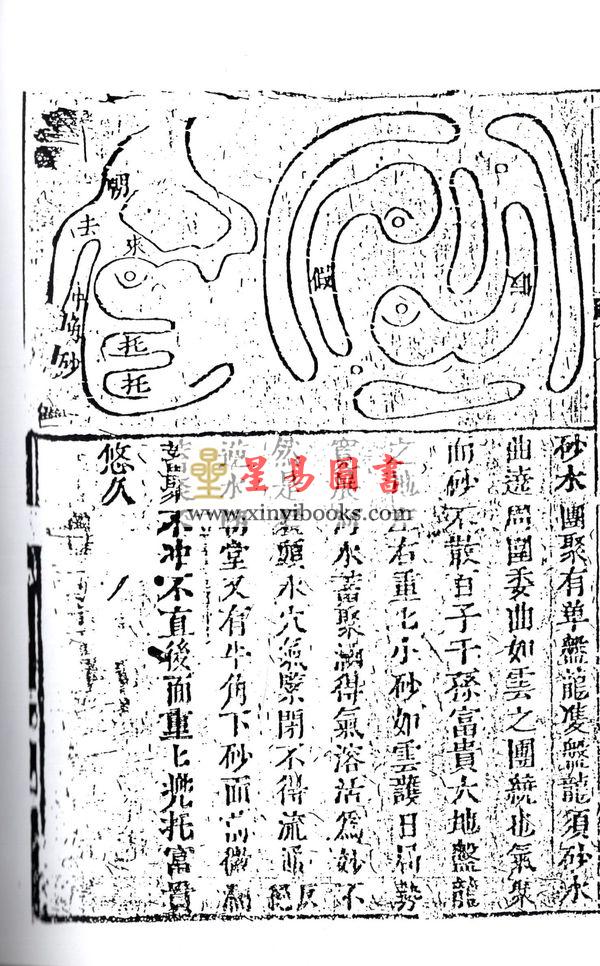 假
假
朝
去
來
牛角砂
托
托
砂水團聚有单盤龍雙盤龍須砂水
曲遶周圍委曲如雲之團繞也氣聚
而砂不散百子千孫富貴大地盤龍
之地左右重匕小砂如雲護日局勢
水蓄聚得氣溶活爲妙不
然是裹頭水穴氣緊閉不得流通反絕
水朝堂又有牛角下砂而前微
蓄聚不冲不直後面重匕兜托富貴
悠久
星易圖書
www.xinyibooks.com